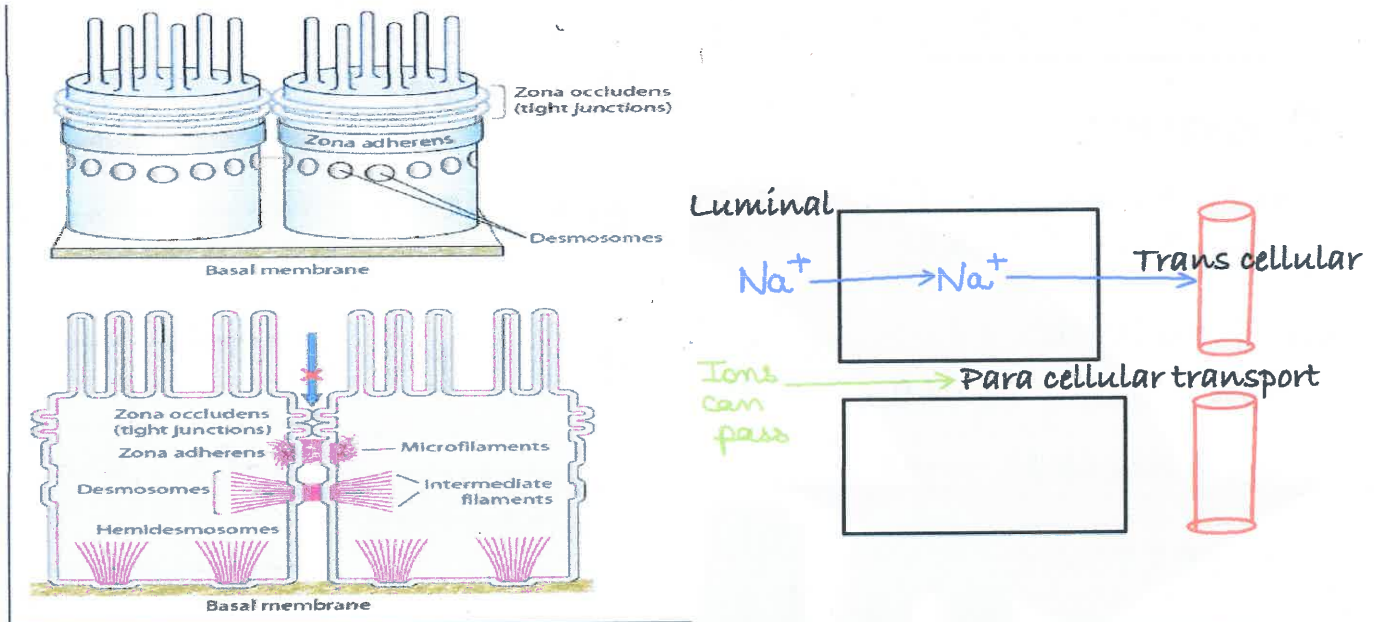 Zona occludens
(tight junctions)
Zona adherens
Desmosomes
Basal membrane
Zona occludens
(tight junctions)
Zona adherens
Microfilaments
Desmosomes
Intermediate
filaments
Hemidesmosomes
Basal membrane
Luminal
Na+ Na+ Trans cellular
Ions
can
pass
Para cellular transport